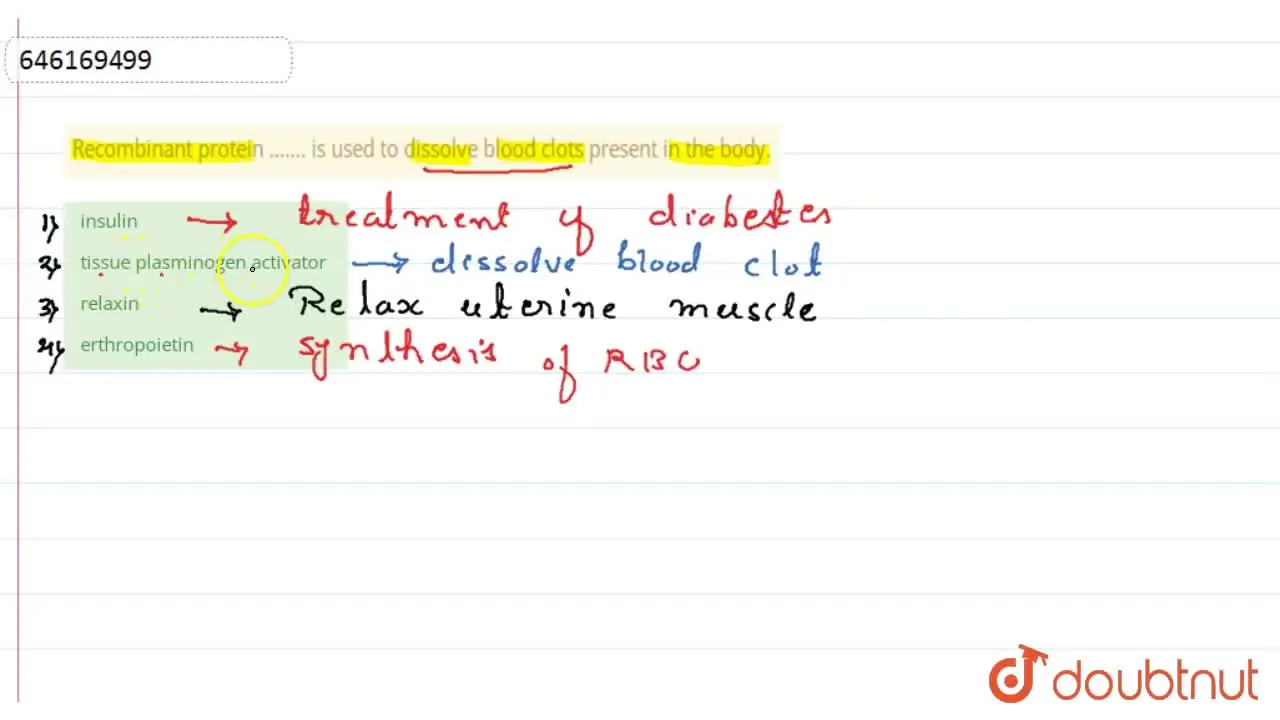 646169499
Recombinant protein ....... is used to dissolve blood clots present in the body.
1) insulin → treatment of diabestes
2) tissue plasminogen activator → dissolve blood clot
3) relaxin → Relax uterine muscle
4) erthropoietin → synthesis of RBC
doubtnut